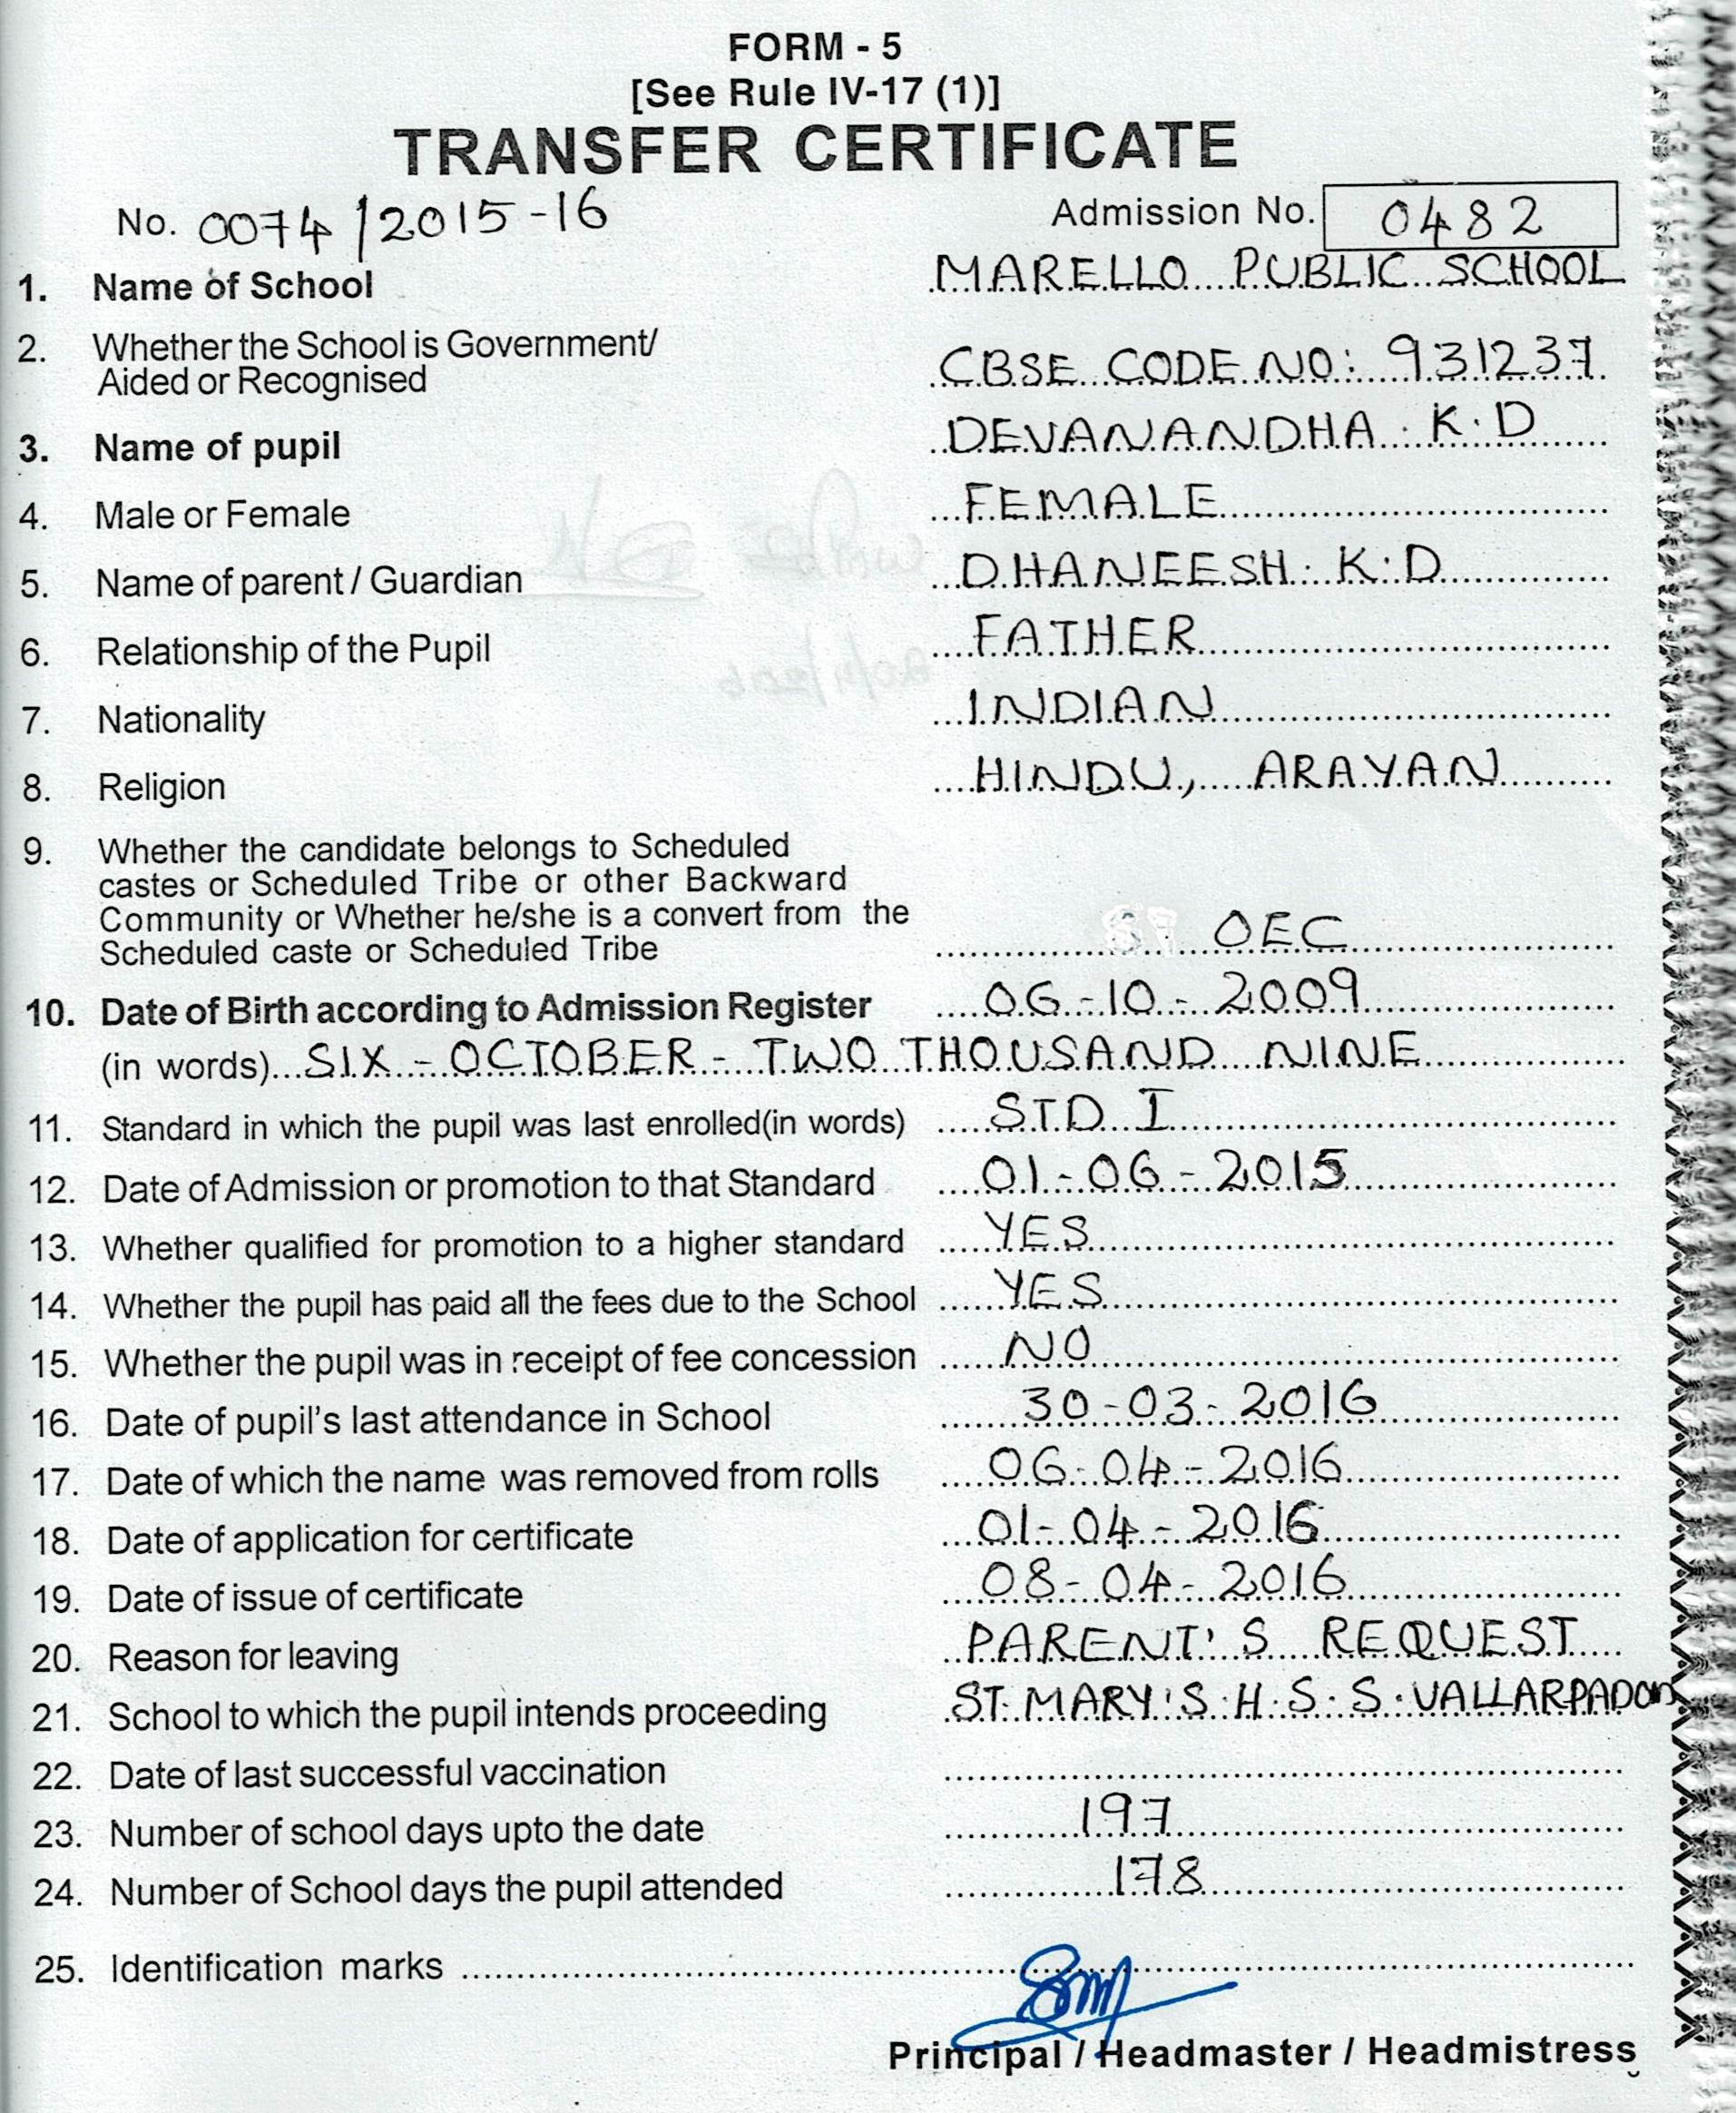 FORM - 5
[See Rule IV-17 (1)]
TRANSFER CERTIFICATE
No. 0074/2015-16 Admission No. 0482
1. Name of School MARELLO PUBLIC SCHOOL
2. Whether the School is Government/
Aided or Recognised CBSE CODE NO: 931237
3. Name of pupil DEVANANDHA. K. D
4. Male or Female FEMALE
5. Name of parent / Guardian DHANEESH. K. D
6. Relationship of the Pupil FATHER
7. Nationality INDIAN
8. Religion HINDU, ARAYAN
9. Whether the candidate belongs to Scheduled
castes or Scheduled Tribe or other Backward
Community or Whether he/she is a convert from the
Scheduled caste or Scheduled Tribe OEC
10. Date of Birth according to Admission Register 06-10-2009
(in words) SIX - OCTOBER - TWO THOUSAND NINE
11. Standard in which the pupil was last enrolled(in words) STD I
12. Date of Admission or promotion to that Standard 01-06-2015
13. Whether qualified for promotion to a higher standard YES
14. Whether the pupil has paid all the fees due to the School YES
15. Whether the pupil was in receipt of fee concession NO
16. Date of pupil's last attendance in School 30-03-2016
17. Date of which the name was removed from rolls 06-04-2016
18. Date of application for certificate 01-04-2016
19. Date of issue of certificate 08-04-2016
20. Reason for leaving PARENT'S REQUEST
21. School to which the pupil intends proceeding ST. MARY'S. H. S. S. VALLARPADOM
22. Date of last successful vaccination
23. Number of school days upto the date 197
24. Number of School days the pupil attended 178
25. Identification marks
Principal / Headmaster / Headmistress